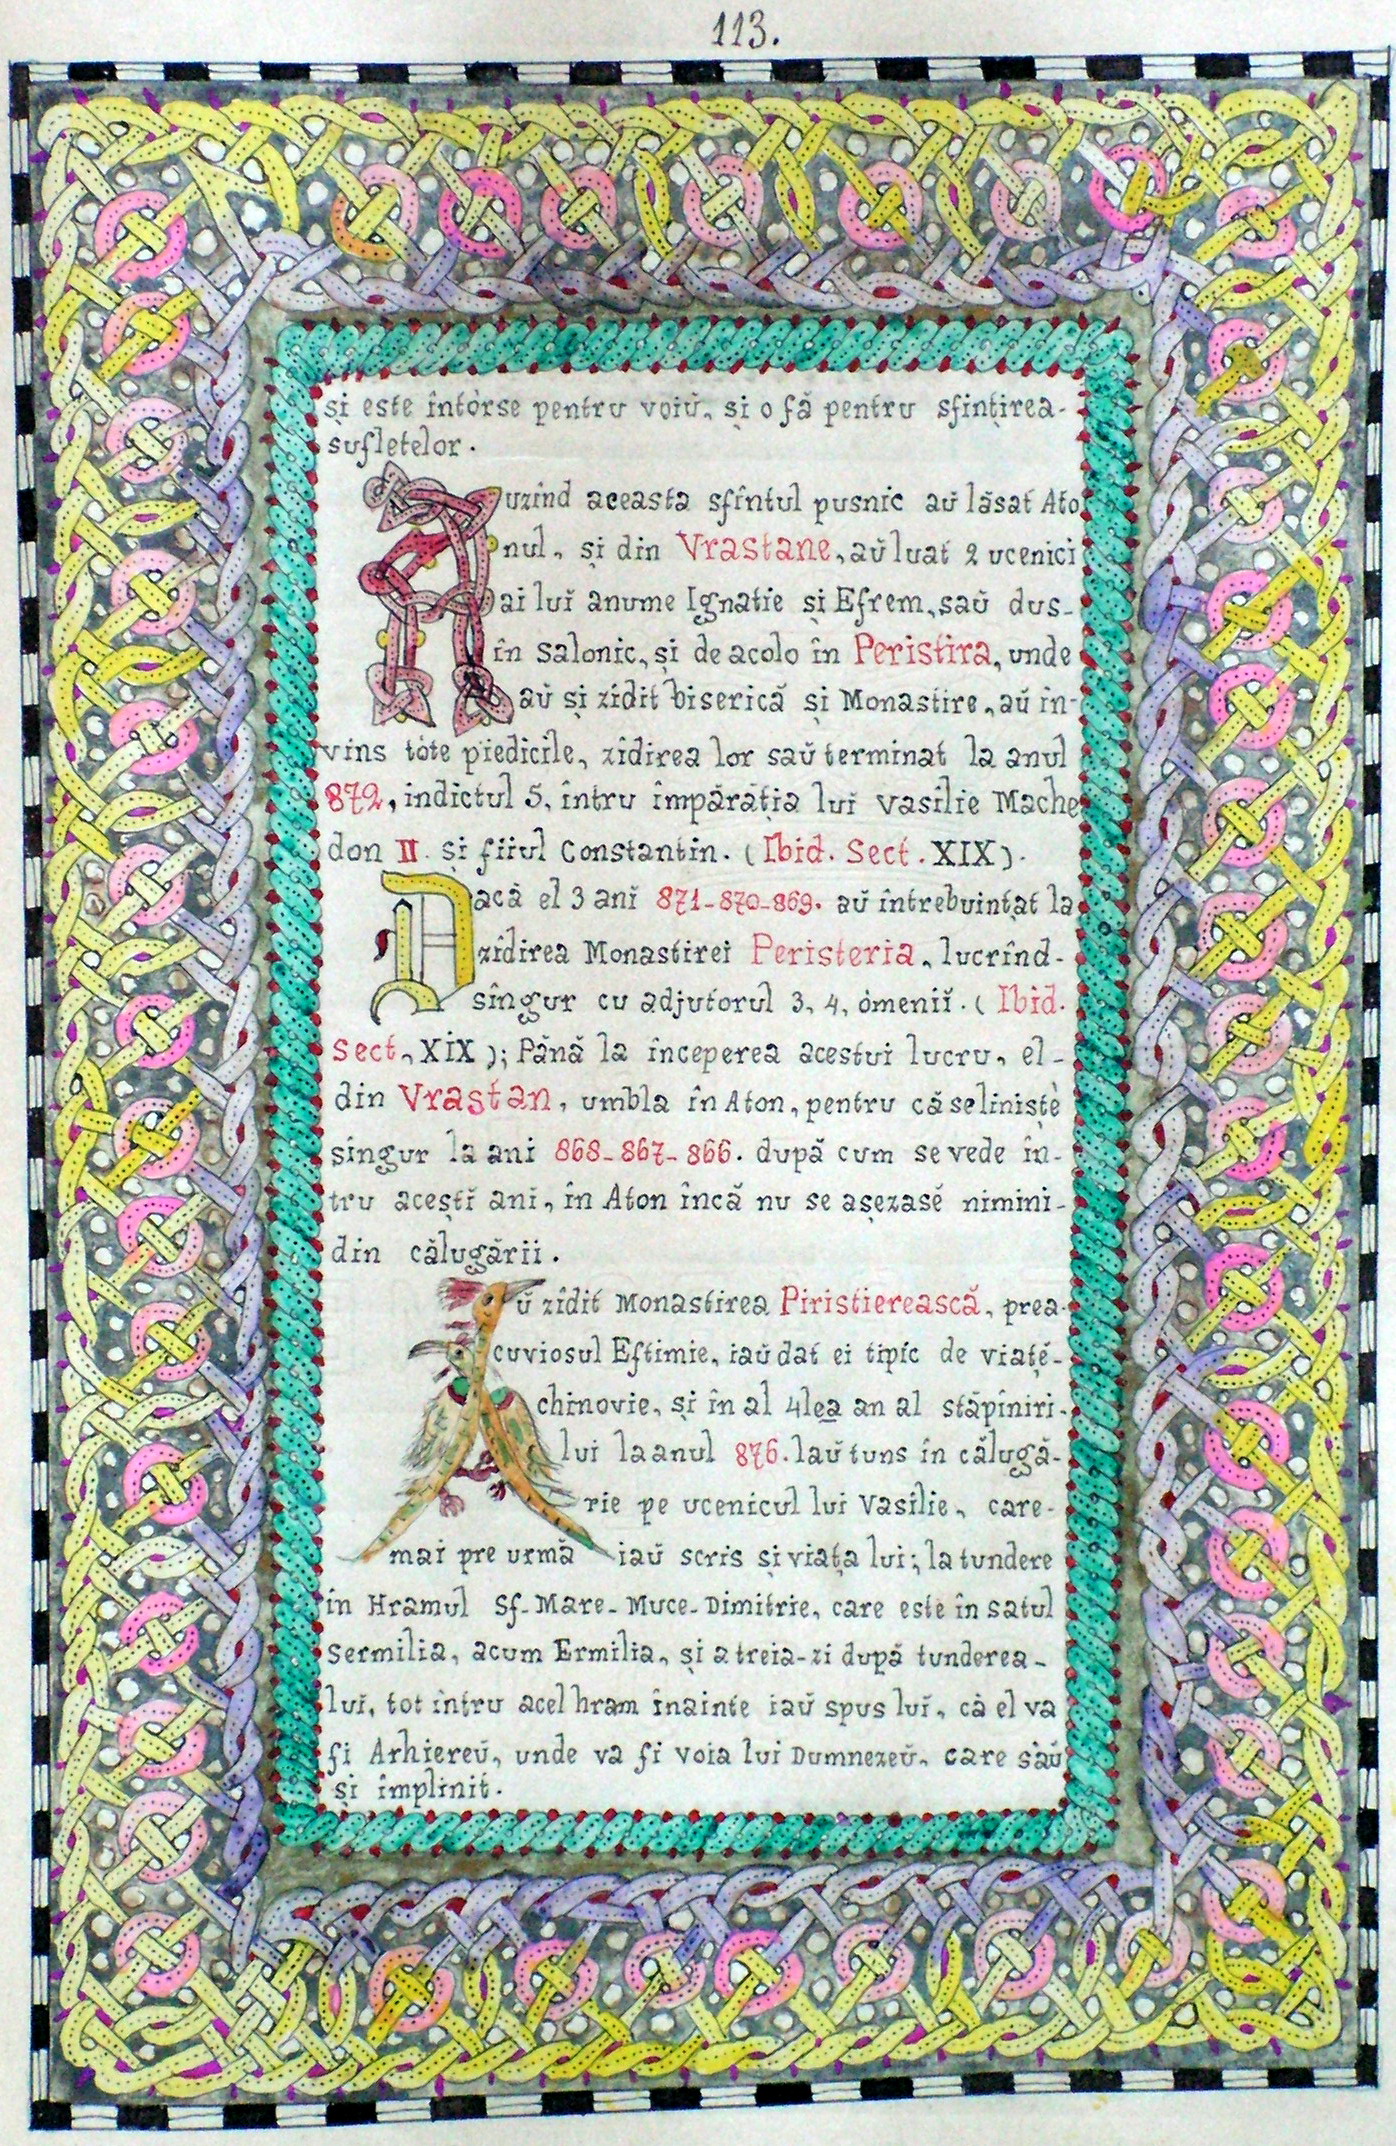 113.
și este întòrse pentru voiŭ, și o fă pentru sfințirea-
sufletelor.
Auzînd aceasta sfîntul pusnic aŭ lăsat Ato
nul, și din Vrastane, aŭ luat 2 ucenici
ai luĭ anume Ignatie și Efrem, saŭ dus-
în Salonic, și de acolo în Peristira, unde
aŭ și zidit biserică și Monastire, aŭ în-
vins tòte piedicile, zîdirea lor saŭ terminat la anul
872, indictul 5, întru împărăția luĭ Vasilie Mache
don II și fiiul Constantin. (Ibid. Sect. XIX).
Dacă el 3 anĭ 871-870-869. aŭ întrebuințat la
zîdirea Monastirei Peristeria, lucrînd-
sîngur cu adjutorul 3, 4, òmeniĭ. (Ibid.
Sect, XIX); Pănă la începerea acestui lucru, el-
din Vrastan, umbla în Aton, pentru că seliniștè
sîngur la ani 868-867-866. după cum se vede în-
tru aceștĭ anĭ, în Aton încă nu se așezasĕ nimini-
din călugării.
Aŭ zîdit Monastirea Piristierească, prea-
cuviosul Eftimie, iaŭ dat ei tipic de viațĕ-
chinovie, și în al 4lea an al stăpîniri-
lui la anul 876. laŭ tuns în călugă-
rie pe ucenicul lui Vasilie, care-
mai pre urmă iaŭ scris și viața lui; la tundere
în Hramul Sf-Mare-Muce-Dimitrie, care este în satul
Sermilia, acum Ermilia, și a treia-zi după tunderea-
luĭ, tot întru acel hram înainte iaŭ spus luĭ, că el va
fi Arhiereŭ, unde va fi voia lui Dumnezeŭ, care s'aŭ
și împlinit.